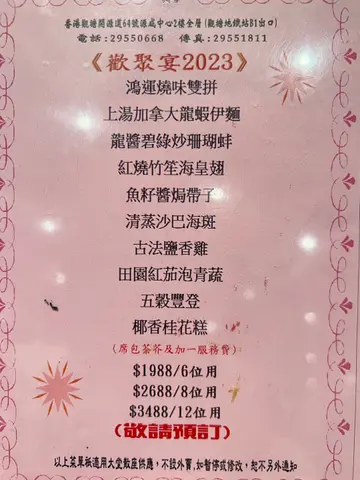 香港觀塘開源道64號源成中心2樓全層(觀塘地鐵站B1出口)
電話:29550668 傳真:29551811
《歡聚宴2023》
鴻運燒味雙拼
上湯加拿大龍蝦伊麵
龍醬碧綠炒珊瑚蚌
紅燒竹笙海皇翅
魚籽醬焗帶子
清蒸沙巴海斑
古法鹽香雞
田園紅茄泡青蔬
五穀豐登
椰香桂花糕
(席包茶芥及加一服務費)
$1988/6位用
$2688/8位用
$3488/12位用
(敬請預訂)
以上菜單祇適用大堂散座供應,不設外賣,如暫停或修改,恕不另外通知